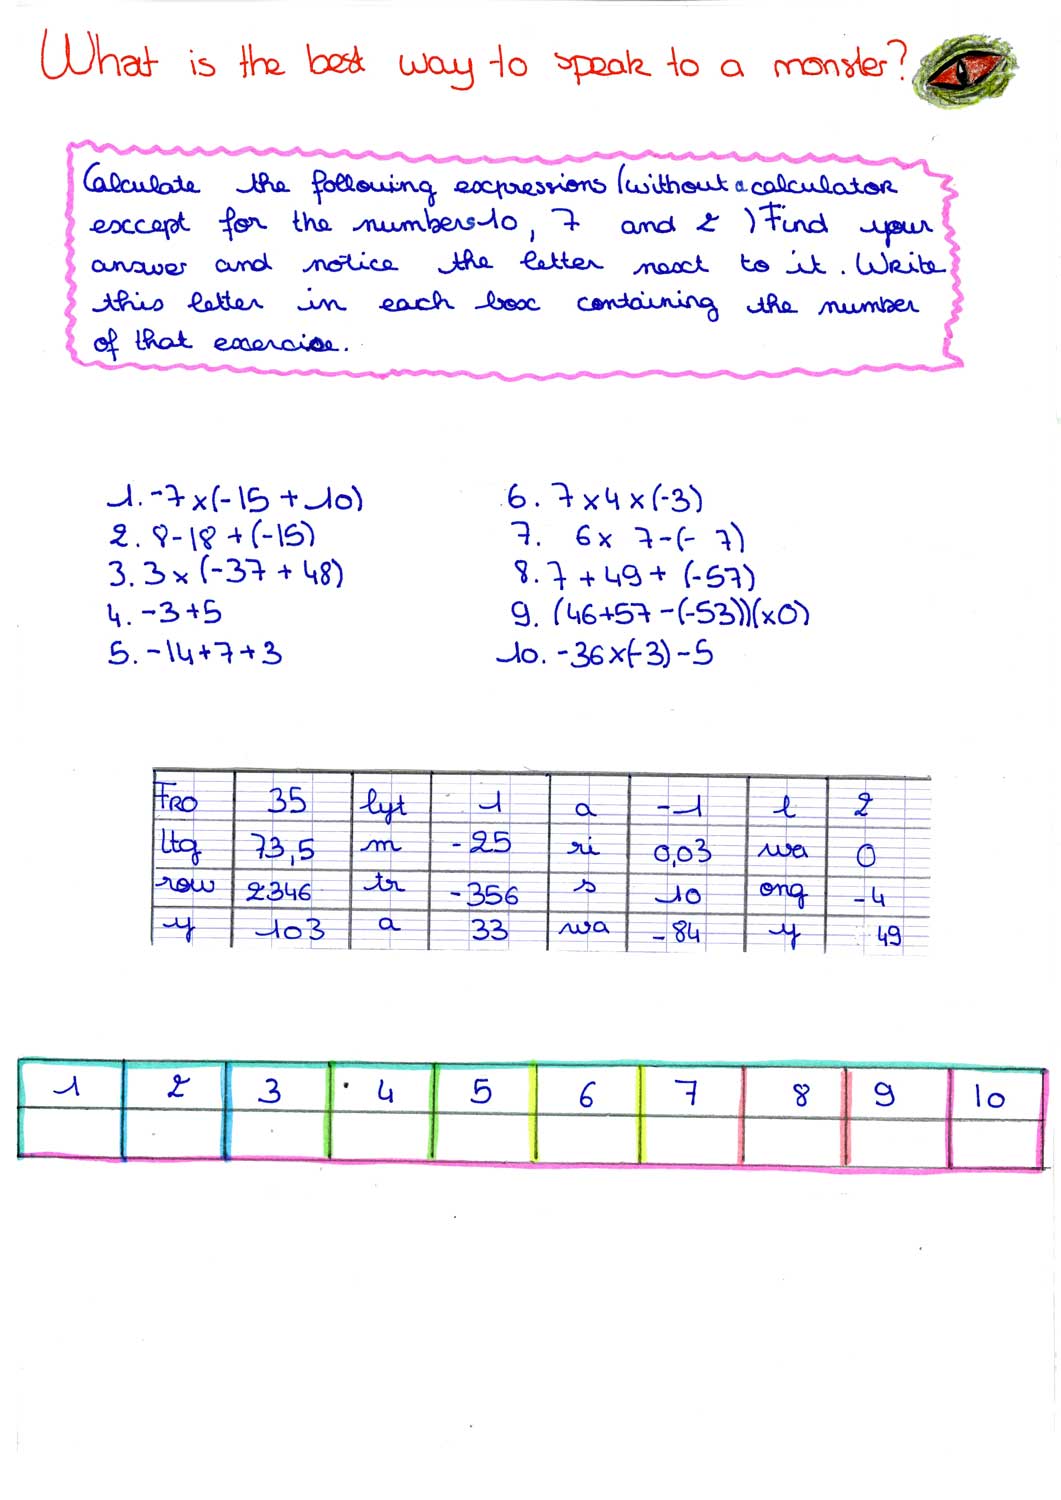 What is the best way to speak to a monster?
Calculate the following expressions (without a calculator
except for the numbers 10, 7 and 2) Find your
answer and notice the letter next to it. Write
this letter in each box containing the number
of that exercise.
1. -7 x (-15 + 10)
2. 8 - 18 + (-15)
3. 3 x (-37 + 48)
4. -3 + 5
5. -14 + 7 + 3
6. 7 x 4 x (-3)
7. 6 x 7 - (- 7)
8. 7 + 49 + (-57)
9. (46 + 57 - (-53)) (x 0)
10. -36 x (-3) - 5
FRO 35 lyt 1 a -1 l 2
ltq 73,5 m -25 ri 0,03 wa 0
row 2346 tr -356 s 10 ong -4
y 103 a 33 wa -84 y 49
1 2 3 4 5 6 7 8 9 10